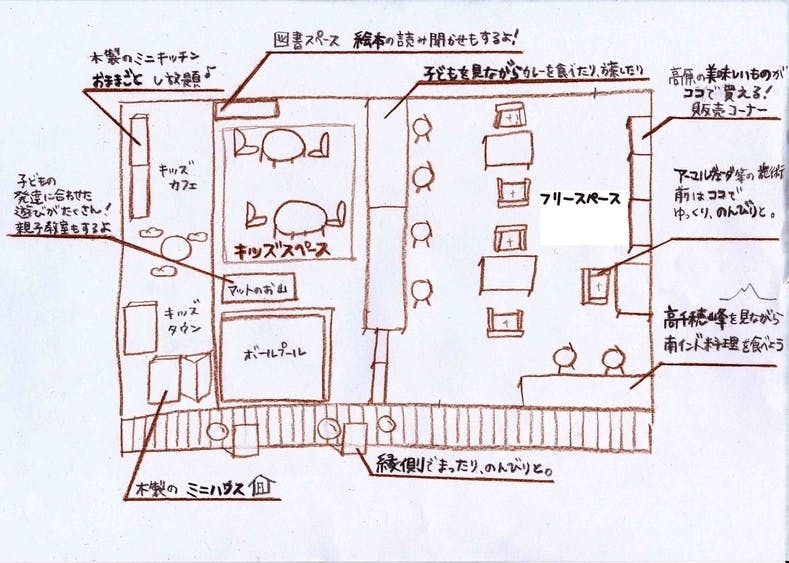 図書スペース 絵本の読み聞かせもするよ!
木製のミニキッチン
おままごと し放題♪
子どもを見ながらカレーを食べたり、お茶したり
高原の美味しいものが
ココで買える!
販売コーナー
キッズ
カフェ
子どもの
発達に合わせた
遊びがたくさん!
親子教室もするよ
キッズスペース
フリースペース
アーユルヴェーダ等の施術
前はココで
ゆっくり、のんびりと。
マットのお山
キッズ
タウン
ボールプール
高千穂峰を見ながら
南インド料理を食べよう
縁側でまったり、のんびりと。
木製の ミニハウス